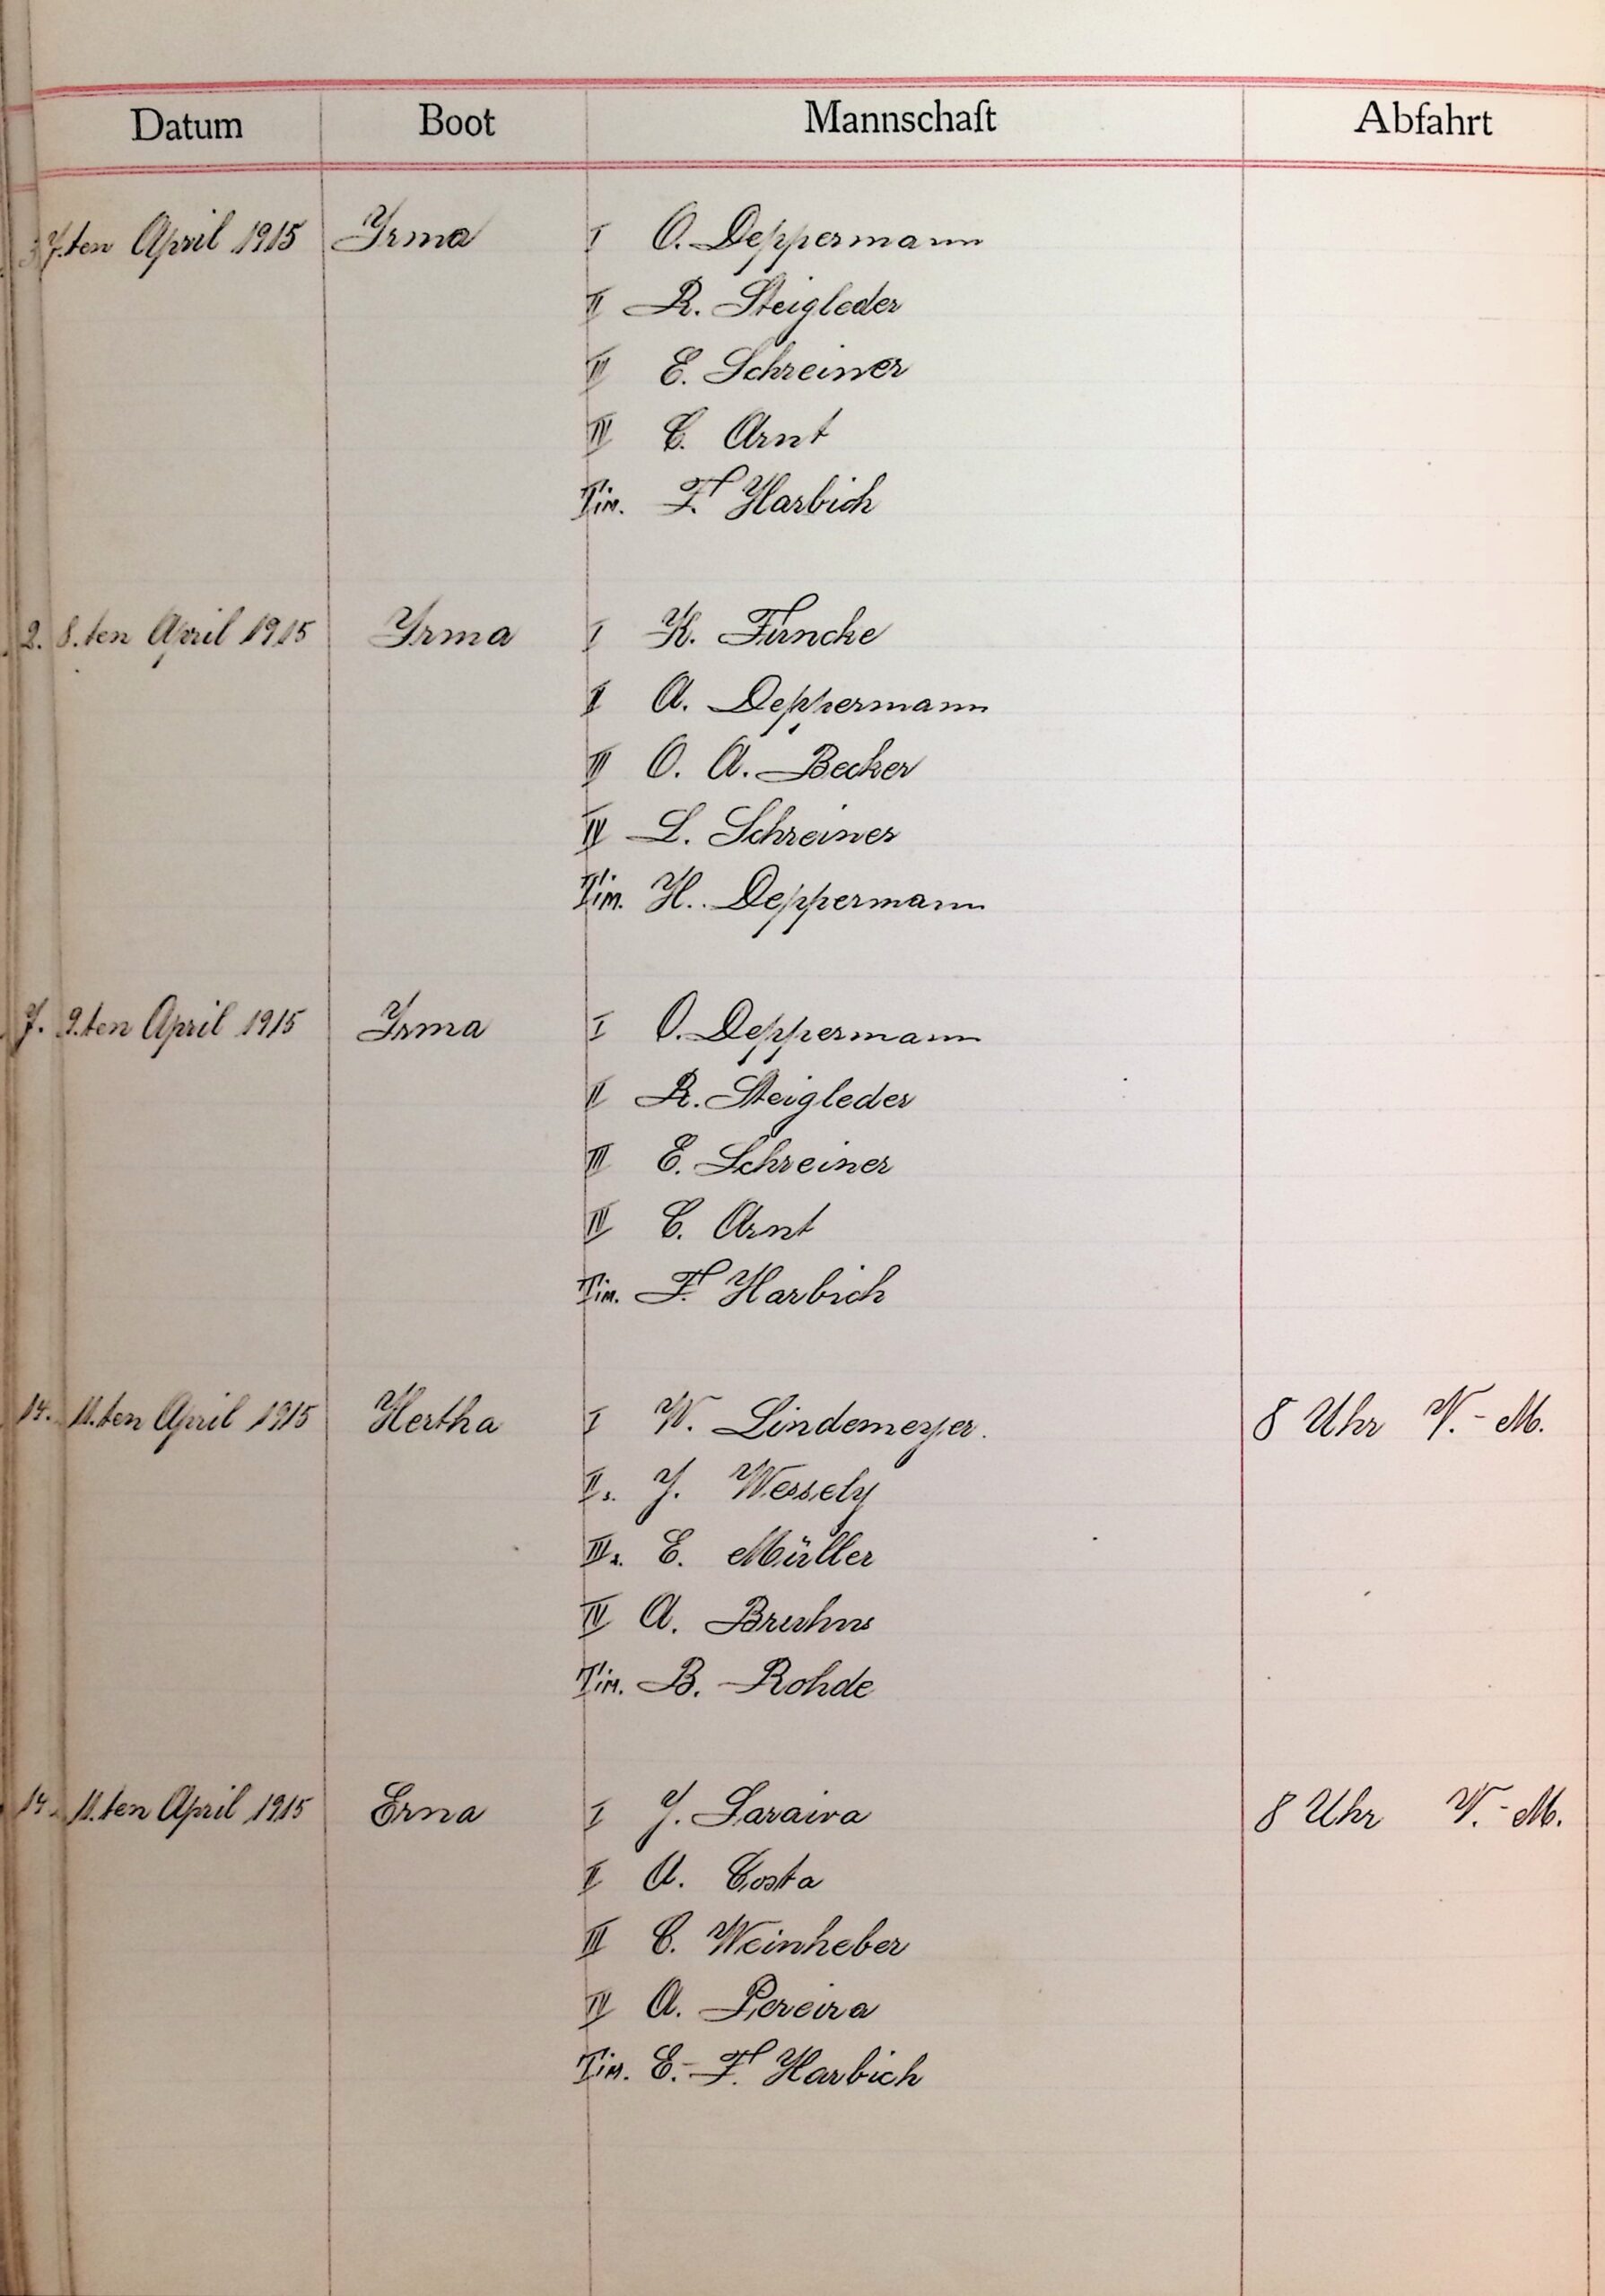 Datum Boot Mannschaft Abfahrt
7.ten April 1915 Yrma I O. Deppermann
II R. Steigleder
III E. Schreiner
IV C. Arnt
Tim. F. Harbich
2. 8.ten April 1915 Yrma I K. Füncke
II A. Deppermann
III O. A. Becker
IV L. Schreiner
Tim. H. Deppermann
7. 9.ten April 1915 Yrma I O. Deppermann
II R. Steigleder
III E. Schreiner
IV C. Arnt
Tim. F. Harbich
14. 11.ten April 1915 Hertha I W. Lindemeyer. 8 Uhr V.-M.
II. J. Wessely
III. E. Müller
IV A. Bruhns
Tim. B. Rohde
14. 11.ten April 1915 Erna I J. Saraiva 8 Uhr V.-M.
II A. Costa
III C. Weinheber
IV A. Pereira
Tim. E.-F. Harbich